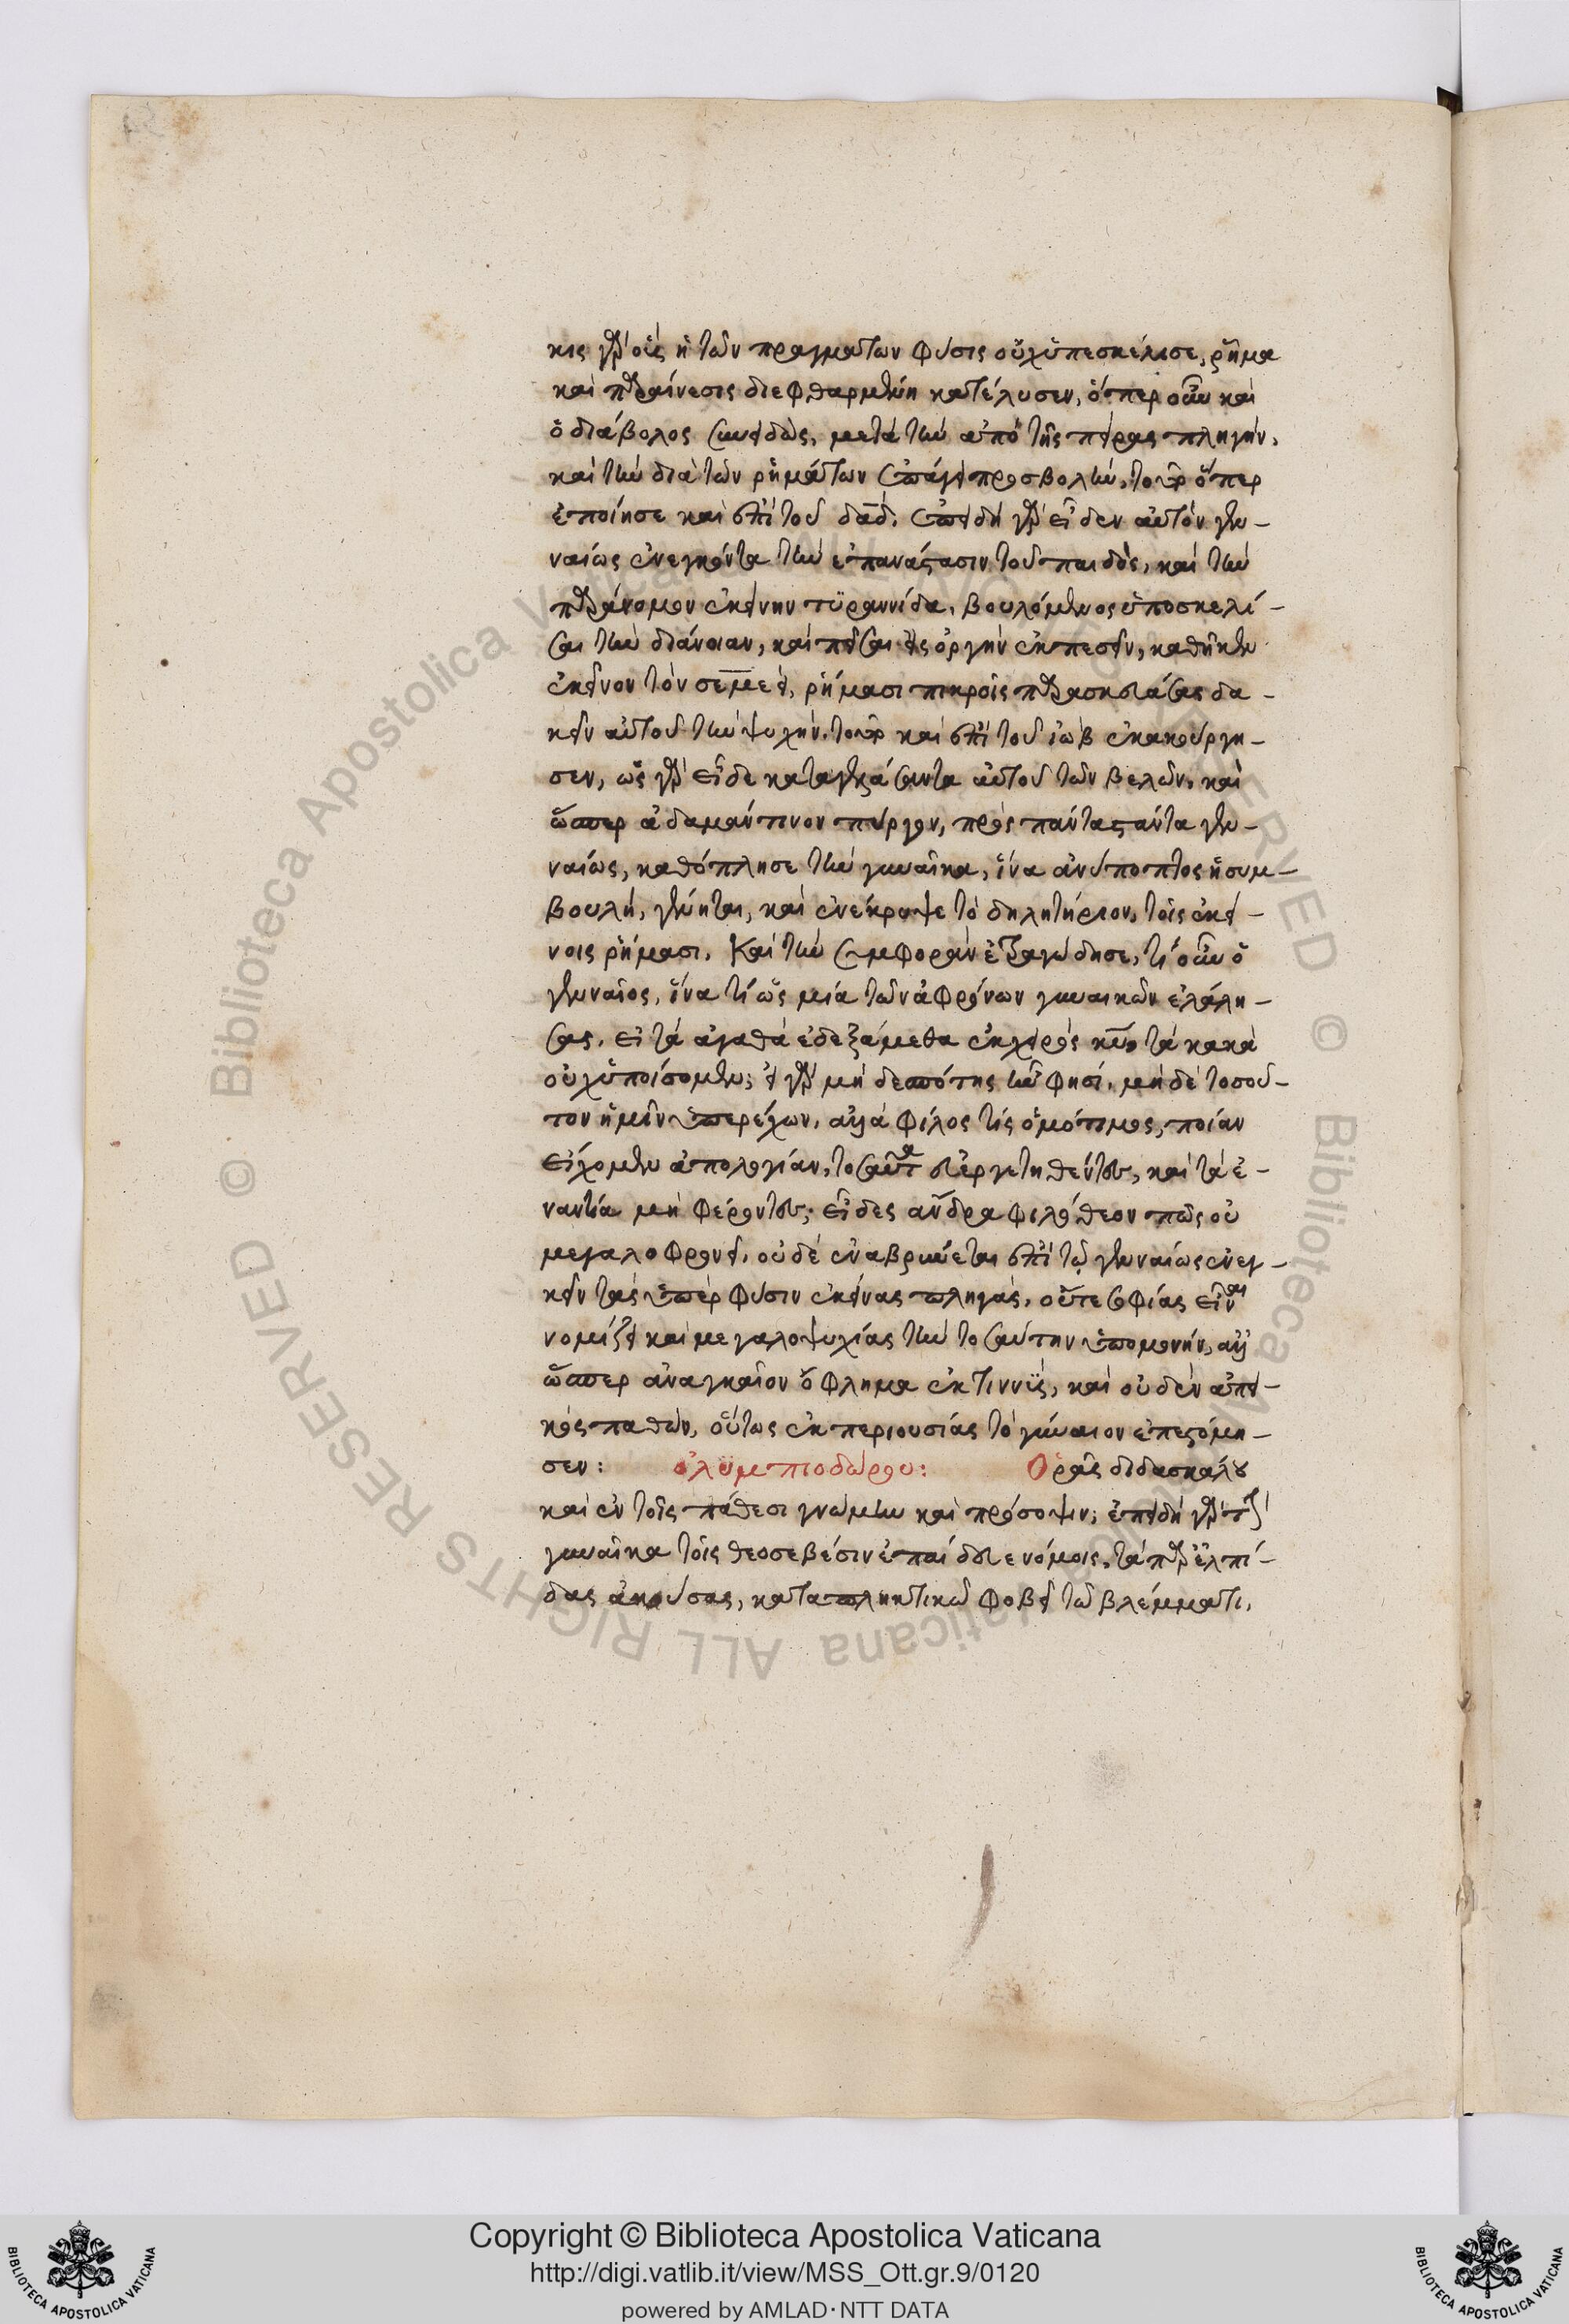 κις γὰρ οὓς ἡ τῶν πραγμάτων φύσις οὐχ ὑπεσκέλισε, ῥῆμα
καὶ παραίνεσις διεφθαρμένη κατέλυσεν, ὅπερ οὖν καὶ
ὁ διάβολος συνειδὼς, μετὰ τὴν ἀπὸ τῆς πείρας πληγὴν,
καὶ τὴν διὰ τῶν ῥημάτων ἐπάγει προσβολὴν, τοῦτο ὅπερ
ἐποίησε καὶ ἐπὶ τοῦ δαδ. ἐπειδὴ γὰρ εἶδεν αὐτὸν γεν-
ναίως ἐνεγκόντα τὴν ἐπανάστασιν τοῦ παιδὸς, καὶ τὴν
παράνομον ἐκείνην τυραννίδα, βουλόμενος ὑποσκελί-
σαι τὴν διάνοιαν, καὶ πεῖσαι εἰς ὀργὴν ἐκπεσεῖν, καθῆκεν
ἐκεῖνον τὸν σεμεεὶ, ῥήμασι πικροῖς παρασκευάσας δα-
κεῖν αὐτοῦ τὴν ψυχήν. τοῦτο καὶ ἐπὶ τοῦ ἰὼβ ἐκακούργη-
σεν, ὡς γὰρ εἶδε καταγελάσαντα αὐτοῦ τῶν βελῶν, καὶ
ὥσπερ ἀδαμάντινον πύργον, πρὸς πάντα στάντα γεν-
ναίως, καθόπλησε τὴν γυναῖκα, ἵνα ἀνύποπτος ἡ συμ-
βουλὴ, γένηται, καὶ ἐνέκρυψε τὸ δηλητήριον, τοῖς ἐκεί-
νοις ῥήμασι. Καὶ τὴν συμφορὰν ἐτραγώδησε, τί οὖν ὁ
γενναῖος, ἵνα τί ὡς μία τῶν ἀφρόνων γυναικῶν ἐλάλη-
σας. εἰ τὰ ἀγαθὰ ἐδεξάμεθα ἐκ χειρὸς κυ τὰ κακὰ
οὐχ ὑποίσομεν; εἰ γὰρ μὴ δεσπότης ἦν φησί, μὴ δὲ τοσοῦ-
τον ἡμῶν ὑπερέχων, ἀλλὰ φίλος τίς ὁμότιμος, ποίαν
εἴχομεν ἀπολογίαν, τοσαῦτα εὐεργετηθέντες, καὶ τὰ ἐ-
ναντία μὴ φέροντες; εἶδες ἄνδρα φιλόθεον πῶς οὐ
μεγαλοφρονεῖ, οὐδὲ ἐναβρύνεται ἐπὶ τῷ γενναίως ἐνεγ-
κεῖν τὰς ὑπὲρ φύσιν ἐκείνας πληγὰς, οὔτε σοφίας εἶναι
νομίζει καὶ μεγαλοψυχίας τὴν τοσαύτην ὑπομονὴν, ἀλλ'
ὥσπερ ἀναγκαῖον ὄφλημα ἐκτιννῢς, καὶ οὐδὲν ἀπει-
κὸς παθὼν, οὕτως ἐκ περιουσίας τὸ γύναιον ἐπεστόμη-
σεν: ὀλυμπιοδώρου: Ὁρᾷς διδασκάλου
καὶ ἐν τοῖς πάθεσι γνώμην καὶ πρόσοψιν; ἐπειδὴ γὰρ τὴν
γυναῖκα τοῖς θεοσεβέσιν ἐπαίδευε νόμοις, τὰ παρ' ἐλπί-
δας ἀκούσας, καταπληκτικῷ φοβεῖ τῷ βλέμματι,